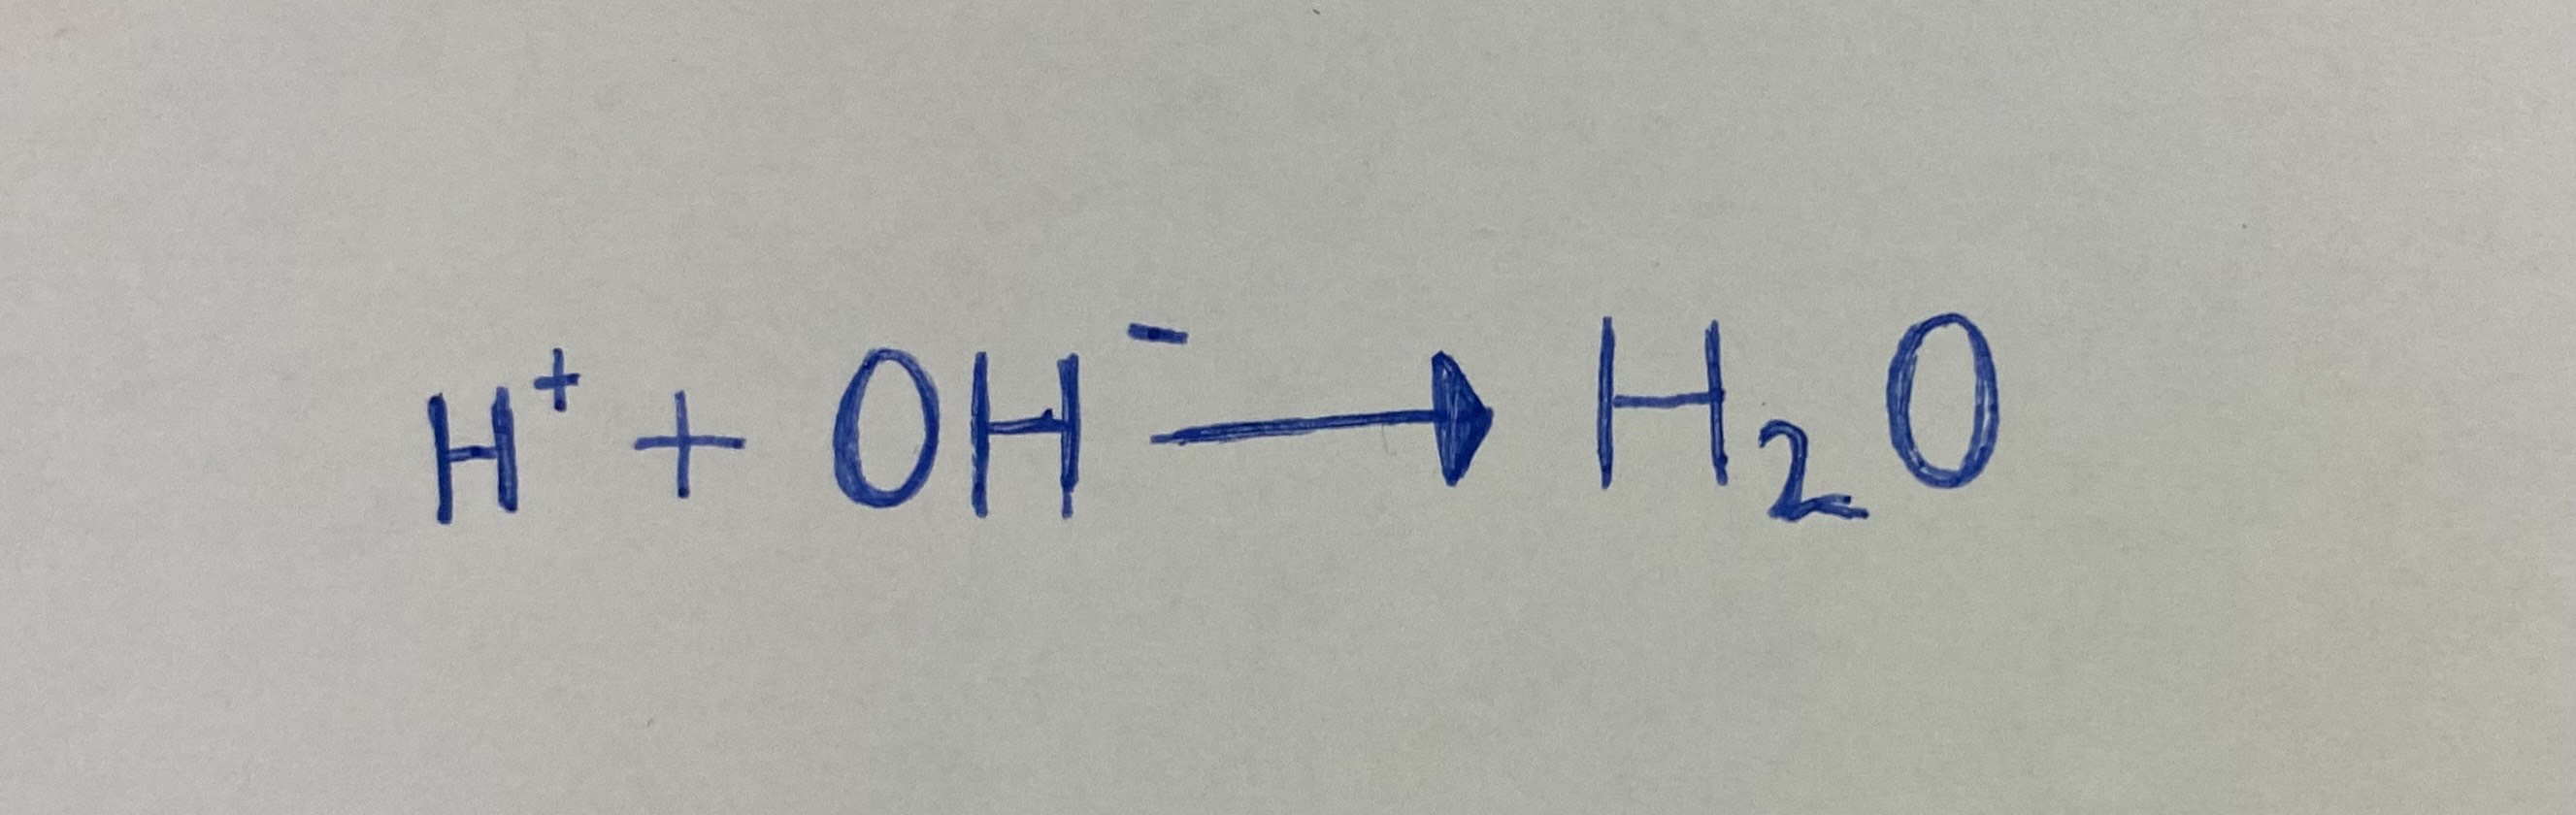 H⁺ + OH⁻ → H₂O